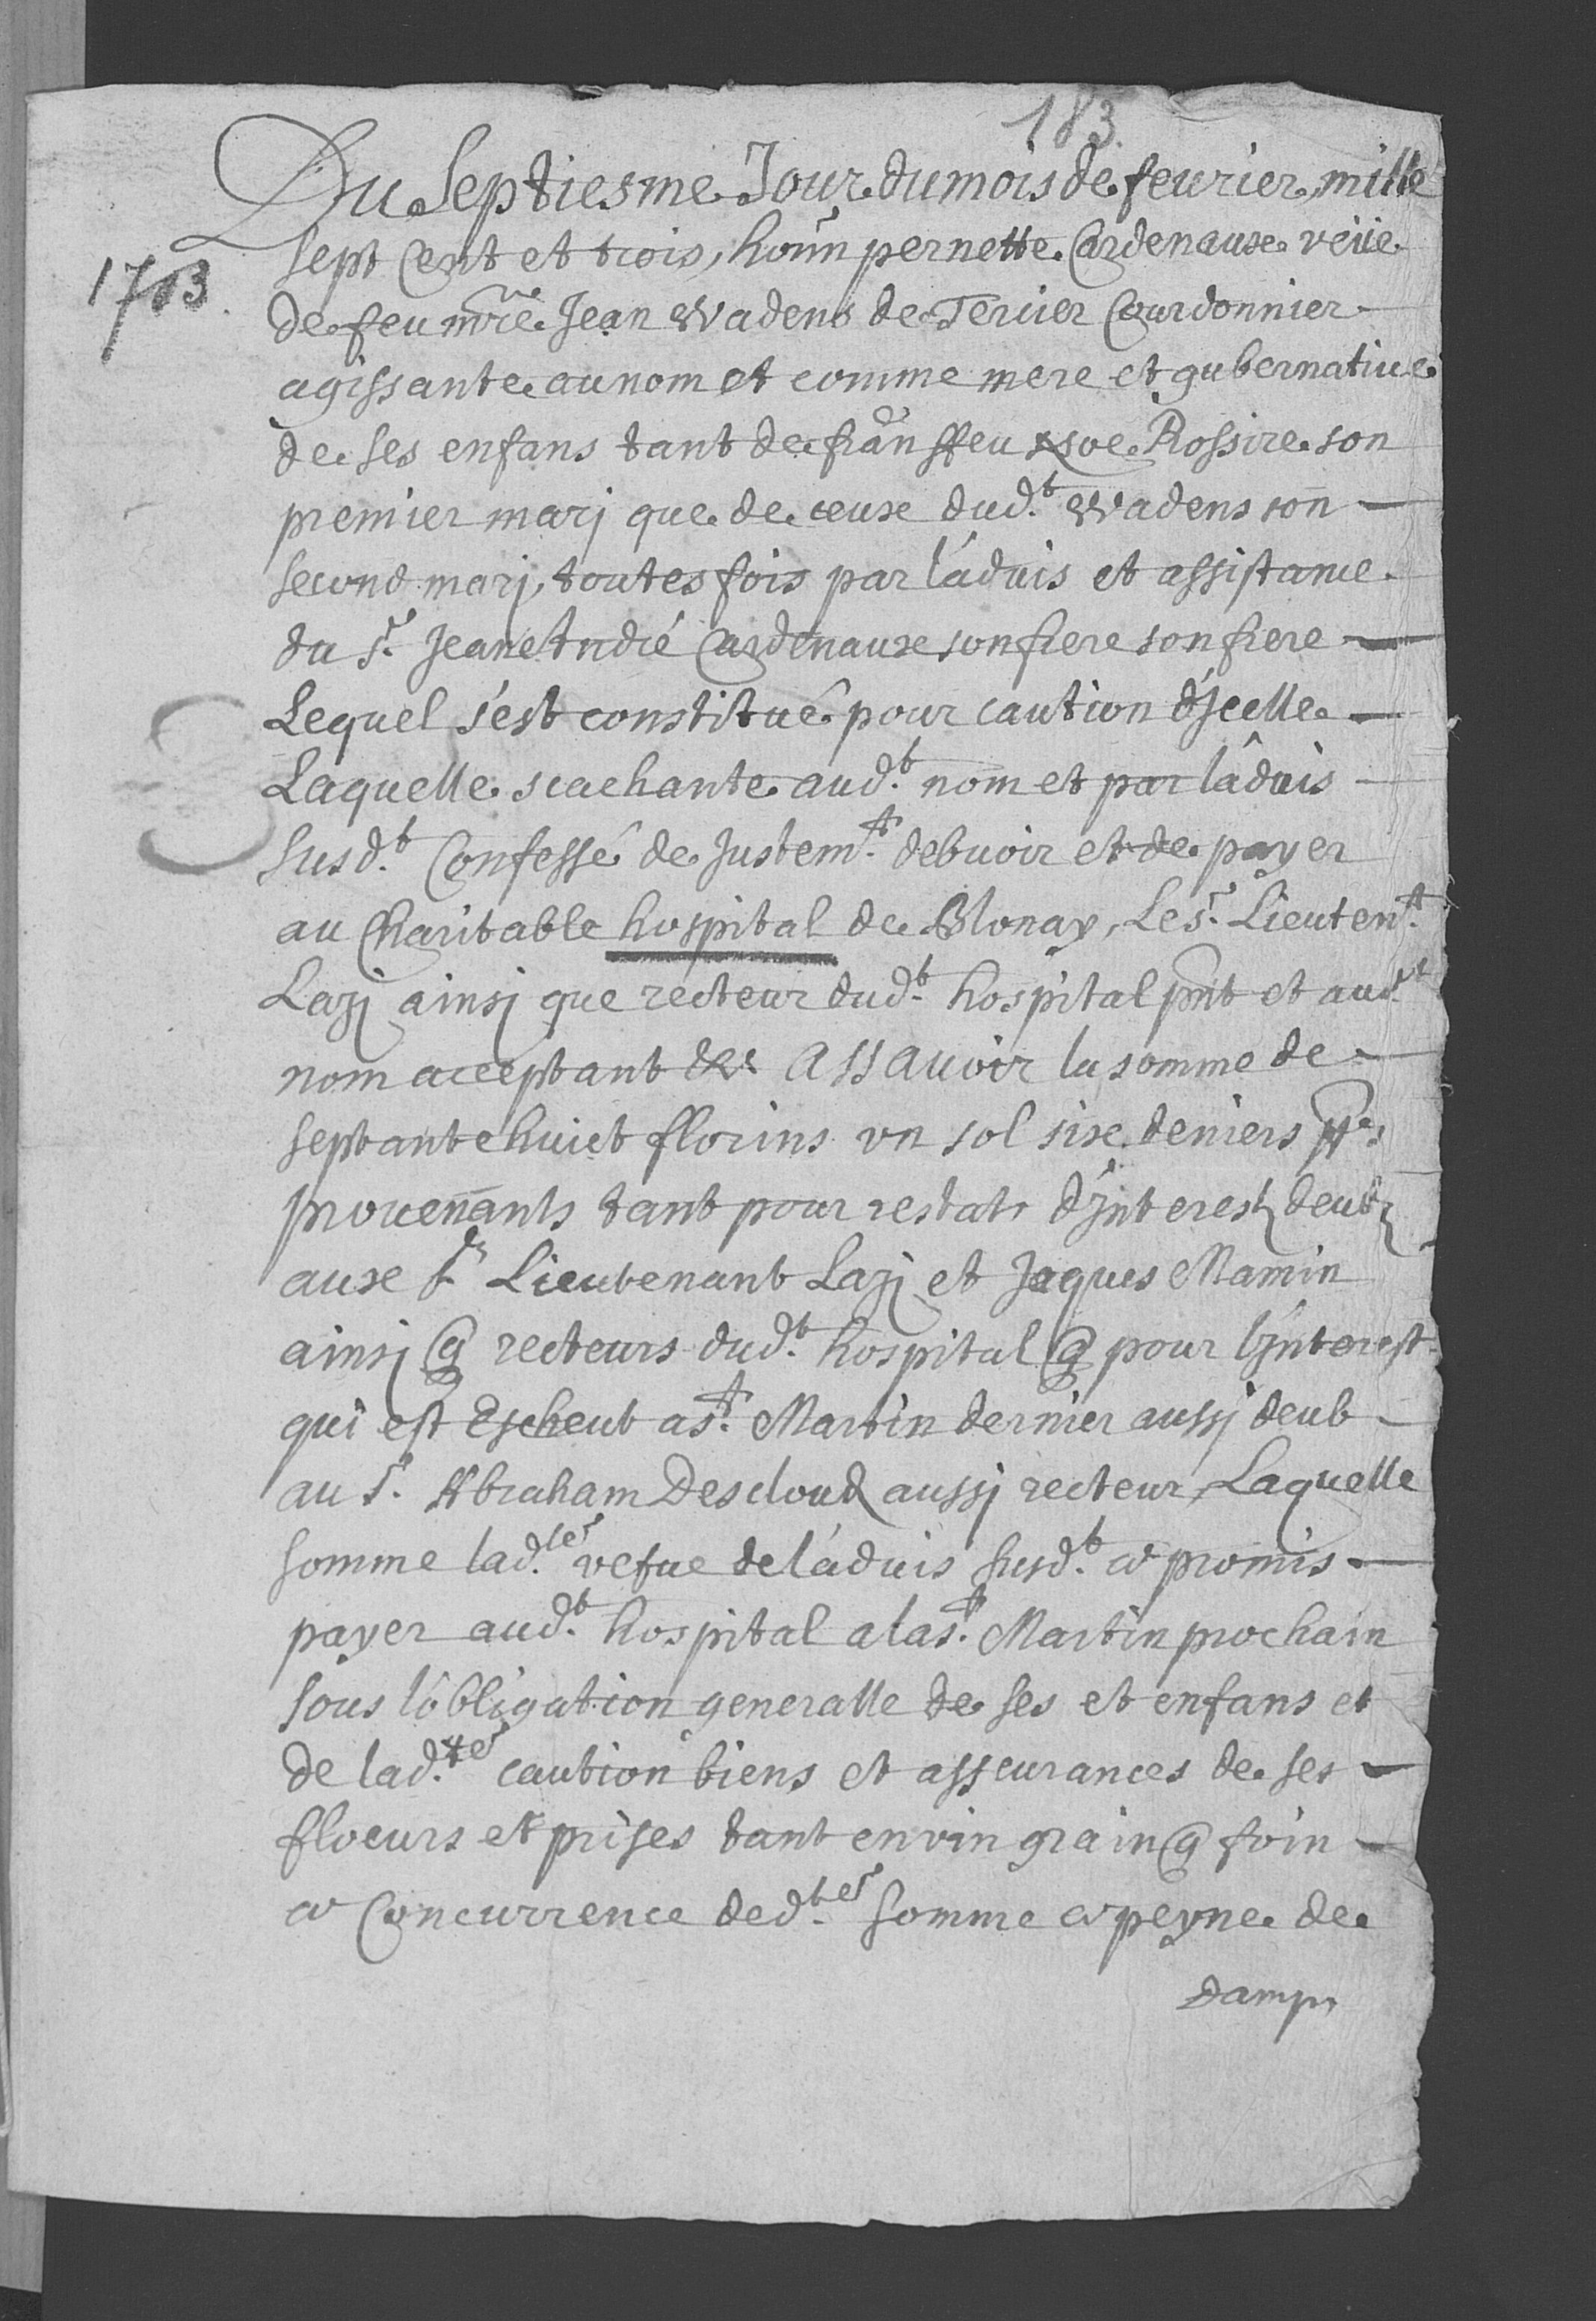 183.
Du Septiesme Jour du mois de feurier mille
1703.
sept Cent et trois, hon͞n pernette Cardenauxe veüe
de feu m͞re Jean Wadens de Teruier Courdonnier
agissante au nom et comme mere et gubernatiue
de ses enfans tant de fran feu Rossire son
premier marj que de ceuxe dud.t Wadens son
second marj, toutesfois par l'aduis et assistance
du Sr. Jean André Cardenauxe son frere son frere
Lequel s'est constitué pour caution d'Jcelle
Laquelle scachante aud.t nom et par l'aduis
Susd.t Confessé de Justem.t debuoir et de payer
au Charitable hospital de Blonay, Le Sr. Lieuten.t
Lazj ainsj que recteur dud.t hospital p͞nt et aud.t
nom acceptant &c. assauoir la somme de
septante huict florins vn sol sixe deniers pp.s
prouenants tant pour restats d'Jnterest deubz
auxe Srs. Lieutenant Lazj et Jaques Mamin
ainsj q recteurs dud.t hospital q pour l'Jnterest
qui est Escheut a St. Martin dernier aussj deub
au S. Abraham Descloud aussj recteur, Laquelle
somme lad.te vefue de l'aduis susd.t a promis
payer aud.t hospital a la St. Martin prochain
sous l'obligation generalle de ses et enfans et
de lad.te caution biens et asseurances de ses
floeurs et prises tant en vin grain q foin
a Concurrence ded.te somme a peyne de
damps